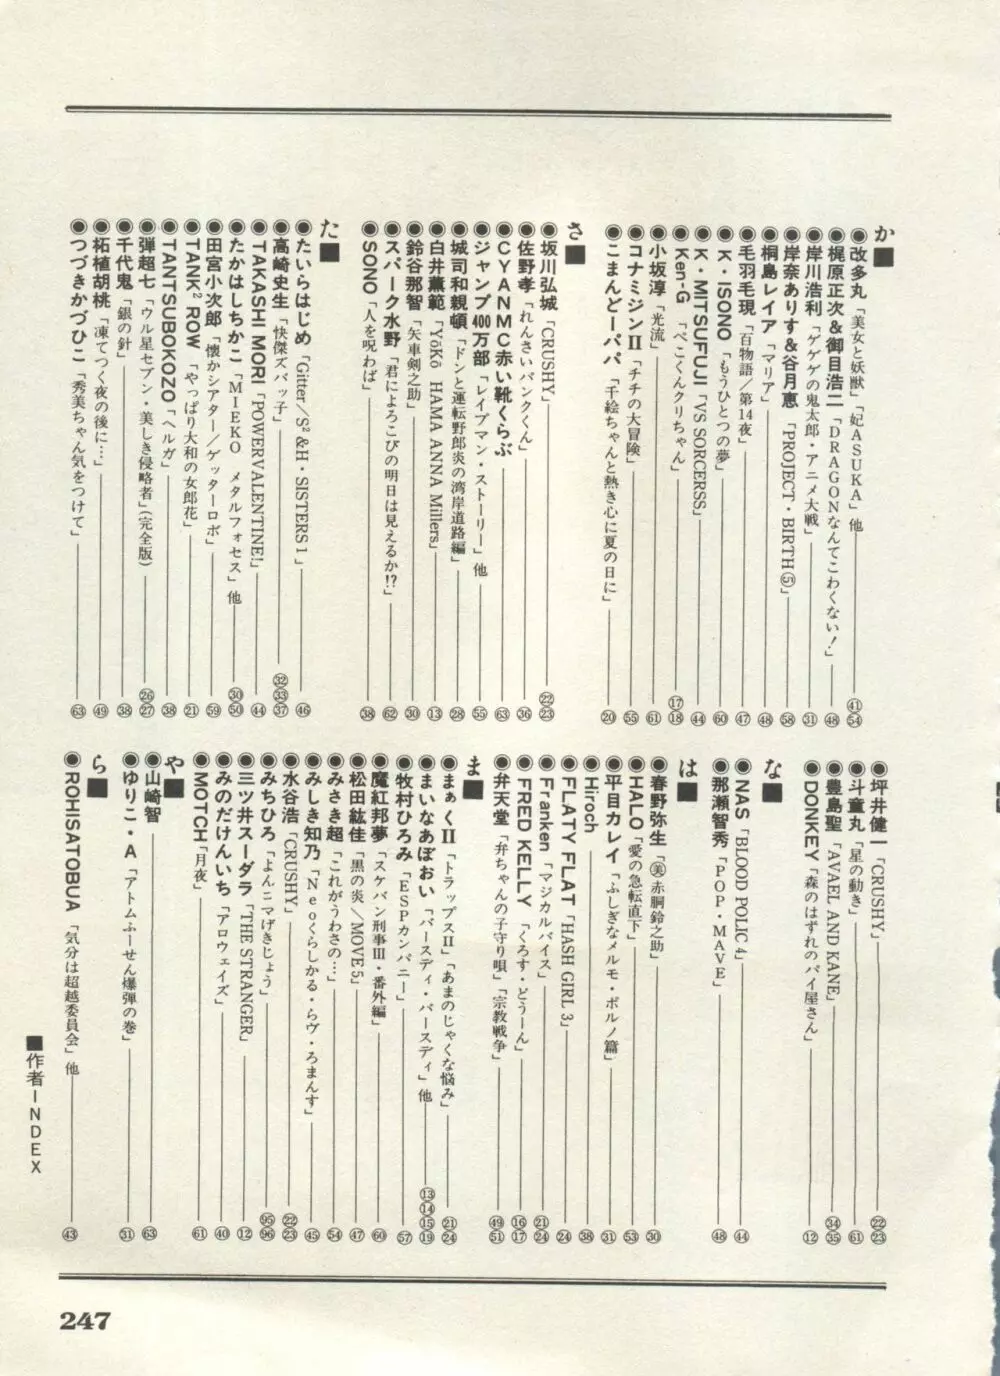 か■
◉改多丸「美女と妖獣」「妃ASUKA」他 ㊶㊴
◉梶原正次&御目浩二「DRAGONなんてこわくない!」 ㊽
◉岸川浩利「ゲゲゲの鬼太郎・アニメ大戦」 ㉛
◉岸奈ありす&谷月恵「PROJECT・BIRTH⑤」 58
◉桐島レイア「マリア」 ㊽
◉毛羽毛現「百物語/第14夜」 ㊼
◉K・ISONO「もうひとつの夢」 60
◉K・MITSUFUJI「VS SORCERSS」 ㊹
◉Ken-G「ぺこくんクリちゃん」 ⑰⑱
◉小坂淳「光流」 61
◉コナミジンII「チチの大冒険」 55
◉こまんどーパパ「千絵ちゃんと熱き心に夏の日に」 ⑳
さ■
◉坂川弘城「CRUSHY」 ㉒㉓
◉佐野孝「れんさいパンクくん」 ㊱
◉CYANMC赤い靴くらぶ 63
◉ジャンプ400万部「レイプマン・ストーリー」他 55
◉城司和親頓「ドンと運転野郎炎の湾岸道路編」 ㉘
◉白井薫範「YōKō HAMA ANNA Millers」 ⑬
◉鈴谷那智「矢車剣之助」 ㉚
◉スパーク水野「君によろこびの明日は見えるか!?」 62
◉SONO「人を呪わば」 ㊳
た■
◉たいらはじめ「Gitter/S²&H・SISTERS1」 ㊻
◉高崎史生「快傑ズバッ子」 ㉜㉝㊲
◉TAKASHI MORI「POWERVALENTINE!」 ㊹
◉たかはしちかこ「MIEKO メタルフォセス」他 ㉚㊿
◉田宮小次郎「懐かシアター/ゲッターロボ」 59
◉TANK² ROW「やっぱり大和の女郎花」 ㉑
◉TANTSUBOKOZO「ヘルガ」 ㊳
◉弾超七「ウル星セブン・美しき侵略者」(完全版) ㉖㉗
◉千代鬼「銀の針」 ㊳
◉柘植胡桃「凍てつく夜の後に…」 ㊾
◉つづきかづひこ「秀美ちゃん気をつけて」 63
◉坪井健一「CRUSHY」 ㉒㉓
◉斗童丸「星の動き」 61
◉豊島聖「AVAEL AND KANE」 ㉞㉟
◉DONKEY「森のはずれのパイ屋さん」 ⑫
な■
◉NAS「BLOOD POLIC 4」 ㊹
◉那瀬智秀「POP・MAVE」 ㊽
は■
◉春野弥生「㊝赤胴鈴之助」 ㉚
◉HALO「愛の急転直下」 53
◉平目カレイ「ふしぎなメルモ・ポルノ篇」 ㉛
◉Hiroch ㊳
◉FLATY FLAT「HASH GIRL 3」 ㉔
◉Franken「マジカルバイス」 ㉑㉔
◉FRED KELLY「くろす・どうーん」 ⑯⑰
◉弁天堂「弁ちゃんの子守り唄」「宗教戦争」 ㊾51
ま■
◉まぁくII「トラップスII」「あまのじゃくな悩み」 ㉑㉔
◉まいなあぼおい「バースディ・バースディ」他 ⑬⑭⑮⑲
◉牧村ひろみ「ESPカンパニー」 57
◉魔紅邦夢「スケバン刑事III・番外編」 60
◉松田紘佳「黒の炎/MOVE5」 ㊼
◉みさき超「これがうわさの…」 54
◉みしき知乃「Neoくらしかる・らヴ・ろまんす」 ㊺
◉水谷浩「CRUSHY」 ㉒㉓
◉みちひろ「よんこマげきじょう」 95 96
◉三ツ井スーダラ「THE STRANGER」 ⑫
◉みのだけんいち「アロウェイズ」 ㊵
◉MOTCH「月夜」 61
や■
◉山崎智 63
◉ゆりこ・A「アトムふーせん爆弾の巻」 ㉛
ら■
◉ROHISATOBUA「気分は超越委員会」他 ㊸
■作者INDEX
247